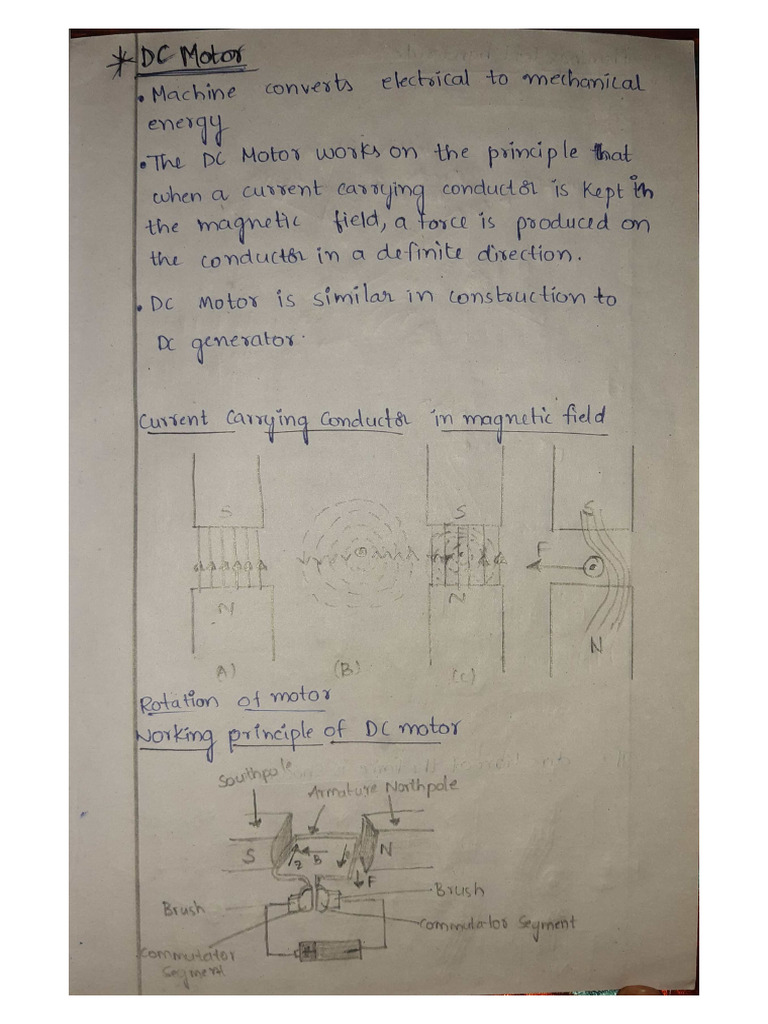 * DC Motor
• Machine converts electrical to mechanical
energy
• The DC Motor works on the principle that
when a current carrying conductor is kept in
the magnetic field, a force is produced on
the conductor in a definite direction.
• DC Motor is similar in construction to
DC generator.
Current Carrying Conductor in magnetic field
S S S
F
N N N
(A) (B) (C)
Rotation of motor
Working principle of DC motor
Southpole
Armature Northpole
S B N
F
Brush Brush
Commutator Segment
Commutator
Segment